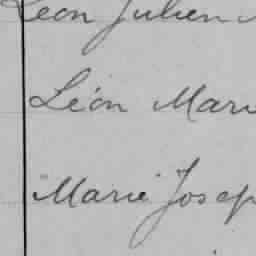 Léon Julien
Léon Mari
Marie Josep